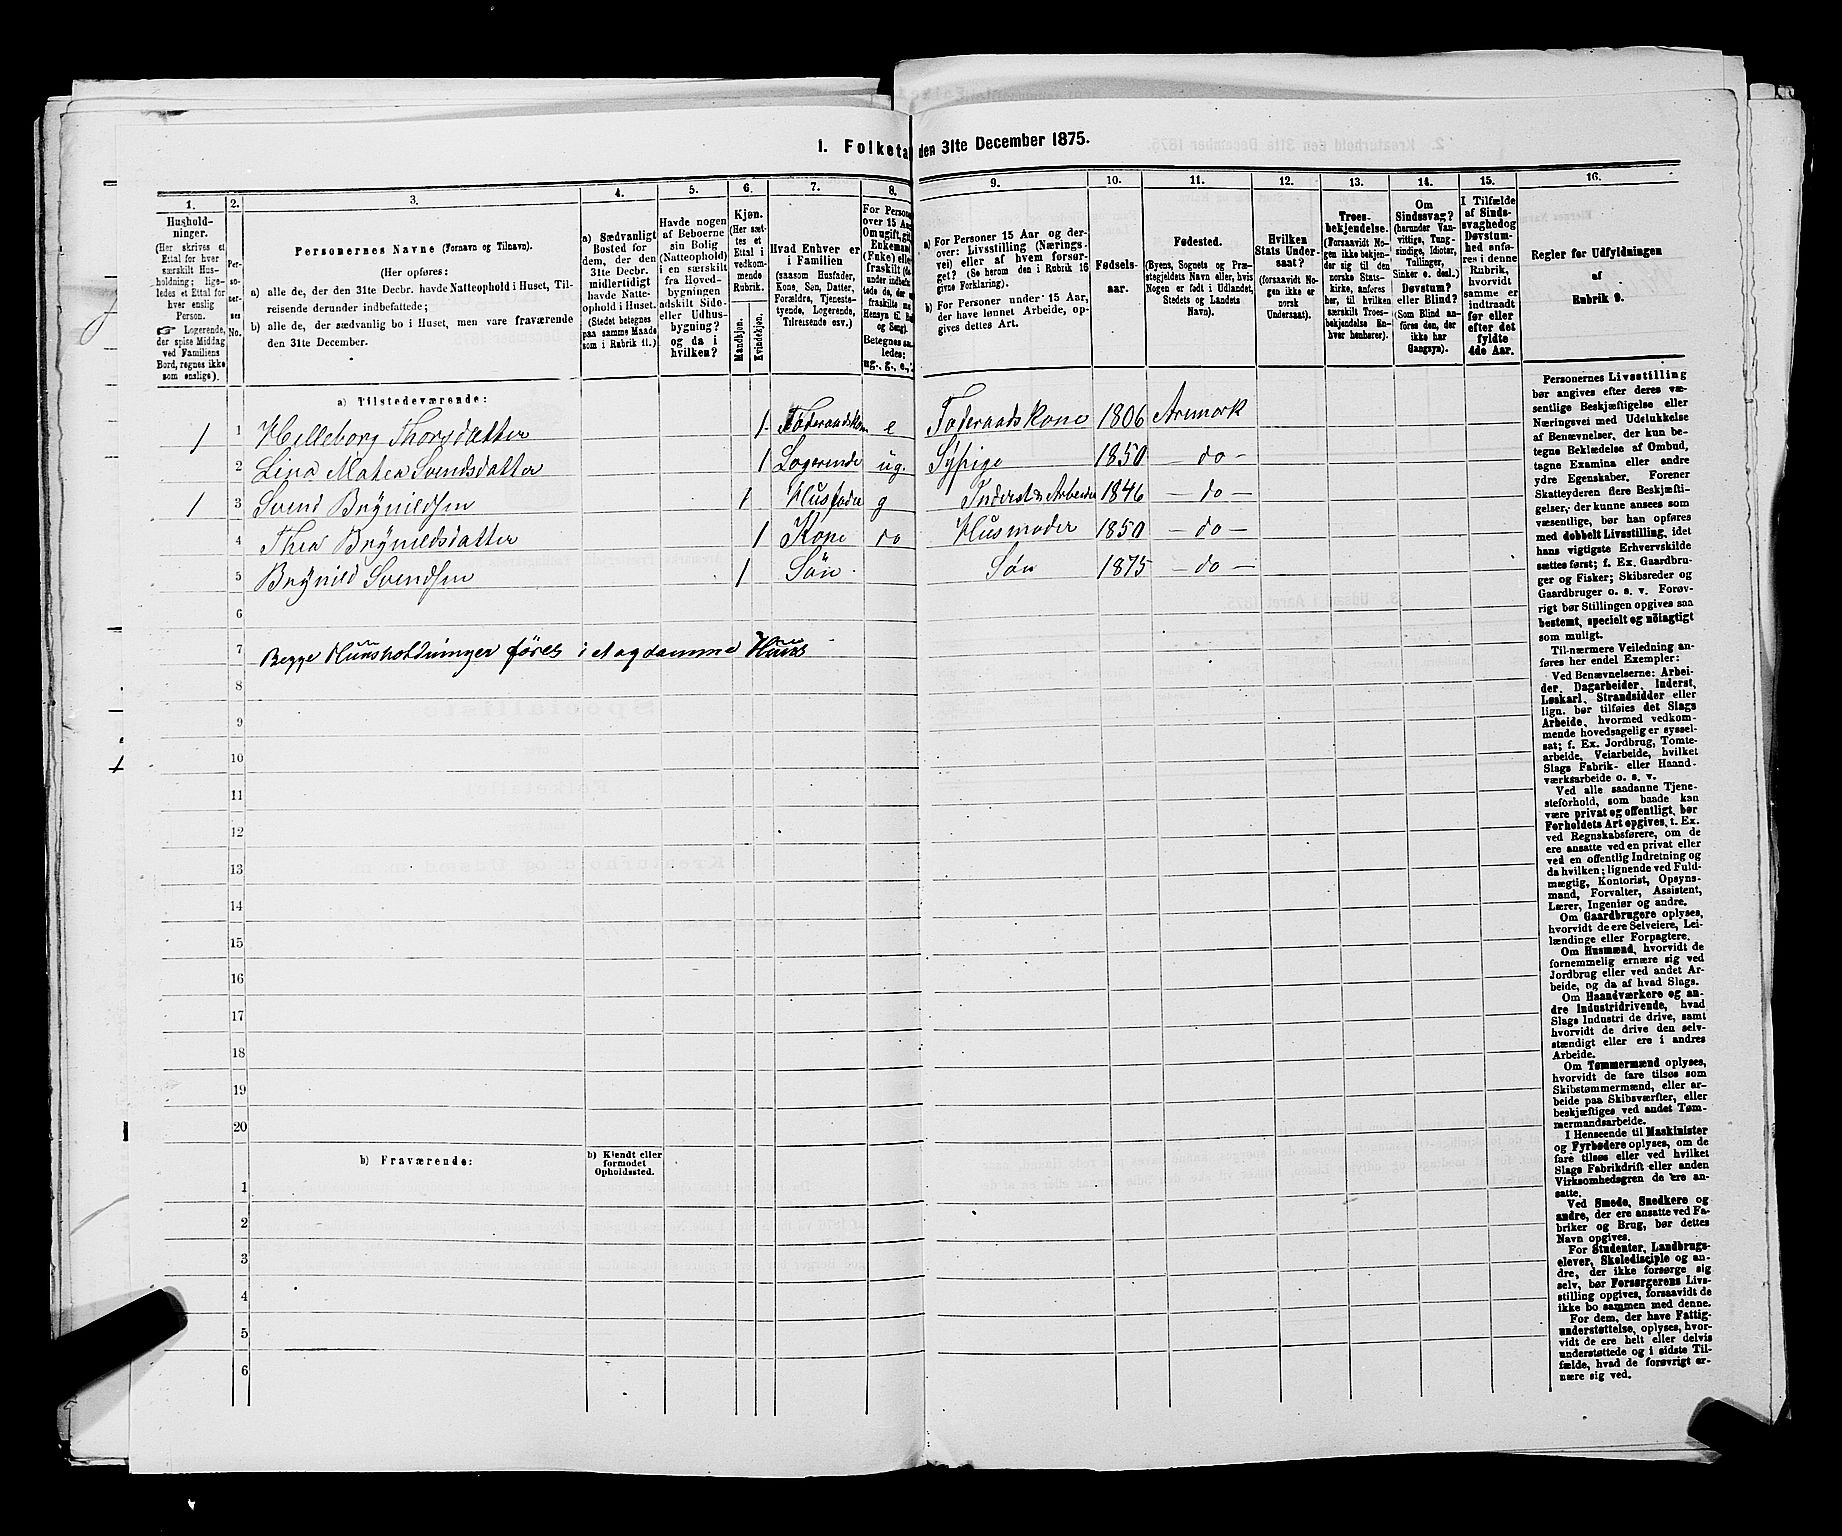 1. Folketa den 31te December 1875.
1. 2. 3. 4. 5. 6. 7. 8. 9. 10. 11. 12. 13. 14. 15. 16.
Hushold-
ninger.
(Her skrives et
Ettal for hver
særskilt Hus-
holdning; lige-
ledes et Ettal for
hver enslig
Person.
☞ Logerende,
der spise Middag
ved Familiens
Bord, regnes ikke
som enslige).
Per-
so-
ner-
nes
No.
Personernes Navne (Fornavn og Tilnavn).
(Her opføres:
a) alle de, der den 31te Decbr. havde Natteophold i Huset, Til-
reisende derunder indbefattede;
b) alle de, der sædvanlig bo i Huset, men vare fraværende
den 31te December.
a) Sædvanligt
Bosted for
dem, der den
31te Decbr.
midlertidigt
havde Natte-
ophold i Huset.
(Stedet betegnes
paa samme Maade
som i Rubrik 11.)
Havde nogen
af Beboerne
sin Bolig
(Natteophold)
i en særskilt
fra Hoved-
bygningen
adskilt Side-
eller Udhus-
bygning?
og da i
hvilken?
Kjøn.
(Her sæt-
tes et
Ettal i
vedkom-
mende
Rubrik.
Mandkjøn.
Kvindekjøn.
Hvad Enhver er
i Familien
(saasom Husfader,
Kone, Søn, Datter,
Forældre, Tjeneste-
tyende, Logerende,
Tilreisende osv.)
For Persone
over 15 Aar
Om ugift, gif
Enkemand
(Enke) elle
fraskilt (de
under indbefat
tede de, der e
fraskilte m
Hensyn til Bo
og Seng).
Betegnes saa-
ledes:
ug., g., e.,
a) For Personer 15 Aar og der-
over: Livsstilling (Nærings-
vei) eller af hvem forsør-
get? (Se herom den i Rubrik 16
givne Forklaring).
b) For Personer under 15 Aar,
der have lønnet Arbeide, op-
gives dettes Art.
Fødsels-
aar.
Fødested.
(Byens, Sognets og Præ-
stegjeldets Navn eller, hvis
Nogen er født i Udlandet,
Stedets og Landets
Navn).
Hvilken
Stats Under-
saat?
(forsaavidt No-
gen ikke er
norsk
Undersaat).
Troes-
bekjendelse.
(Forsaavidt No-
gen ikke bekjen-
der sig til den
norske Stats-
kirke, anføres
her, til hvilken
særskilt Troes-
bekjendelse En-
hver henhører).
Om
Sindssvag?
(herunder Van-
vittige, Tung-
sindige, Idioter,
Tullinger,
Sinker o. desl.)
Døvstum?
eller Blind?
(Som Blind an-
føres den, der
ikke har
Gangsyn).
I Tilfælde
af Sinds-
svaghed og
Døvstum-
hed anfø-
res i denne
Rubrik,
hvorvidt
samme er
indtraadt
før eller
efter det
fyldte
4de Aar.
Regler for Udfyldningen
af
Rubrik 9.
a) Tilstedeværende:
1 1 Helleborg Thorsdatter 1 Føderaadskone e Føderaadskone 1806 Aremark
2 Lina Mathea Svendsdatter 1 Logerende ug. Sypige 1850 – do –
1 3 Svend Brynildsen 1 Husfader g Inderst & Arbeider 1846 – do –
4 Thea Brynildsdatter 1 Kone do Husmoder 1850 – do –
5 Brynild Svendsen 1 Søn Søn 1875 – do –
6
7 Begge Husholdninger føres i et og samme Huus
8
9
10
11
12
13
14
15
16
17
18
19
20
b) Fraværende:
b) Kjendt eller
formodet
Opholdssted.
1
2
3
4
5
6
Personernes Livsstilling
bør angives efter deres væ-
sentlige Beskjæftigelse eller
Næringsvei med Udelukkelse
af Benævnelser, der kun be-
tegne Beklædelse af Ombud,
tagne Examina eller andre
ydre Egenskaber. Forener
Skatteyderen flere Beskjæfti-
gelser, der kunne ansees som
væsentlige, bør han opføres
med dobbelt Livsstilling, idet
hans vigtigste Erhvervskilde
sættes først; f. Ex. Gaardbru-
ger og Fisker; Skibsreder og
Gaardbruger o. s. v. Forøv-
rigt bør Stillingen opgives saa
bestemt, specielt og nøiagtigt
som muligt.
Til nærmere Veiledning an-
føres her endel Exempler:
Ved Benævnelserne: Arbei-
der, Dagarbeider, Inderst,
Løskarl, Strandsidder eller
lign. bør tilføies det Slags
Arbeide, hvormed vedkom-
mende hovedsagelig er syssel-
sat; f. Ex. Jordbrug, Tomte-
arbeide, Veiarbeide, hvilket
Slags Fabrik- eller Haand-
værksarbeide o. s. v.
Ved alle saadanne Tjene-
steforhold, som baade kan
være privat og offentligt, bør
Forholdets Art opgives, t. Ex.
ved Regnskabsførere, om de
ere ansatte ved en privat eller
ved en offentlig Indretning og
da hvilken; lignende ved Fuld-
mægtig, Kontorist, Opsyns-
mand, Forvalter, Assistent,
Lærer, Ingeniør og andre.
Om Gaardbrugere oplyses,
hvorvidt de ere Selveiere, Lei-
lændinge eller Forpagtere.
Om Husmænd, hvorvidt de
fornemmelig ernære sig ved
Jordbrug eller ved andet Ar-
beide, og da af hvad Slags.
Om Haandværkere og an-
dre Industridrivende, hvad
Slags Industri de drive, samt
hvorvidt de drive den selv-
stændigt eller ere i andres
Arbeide.
Om Tømmermænd oplyses,
hvorvidt de fare tilsøs som
Skibstømmermænd, eller ar-
beide paa Skibsværfter, eller
beskjæftiges ved andet Tøm-
mermandsarbeide.
I Henseende til Maskinister
og Fyrbødere oplyses, om de
fare tilsøs eller ved hvilket
Slags Fabrikdrift eller anden
Virksomhedsgren de ere an-
satte.
Ved Smede, Snedkere og
andre, der ere ansatte ved Fa-
briker og Brug, bør dettes
Navn opgives.
For Studenter, Landbrugs-
elever, Skoledisciple og an-
dre, der ikke forsørge sig
selv, bør Forsørgerens Livs-
stilling opgives, forsaavidt de
ikke bo sammen med denne.
For dem, der have Fattig-
understøttelse, oplyses, hvor-
vidt de ere helt eller delvis
understøttede og i sidste Til-
fælde, hvad de forøvrigt er-
nære sig ved.